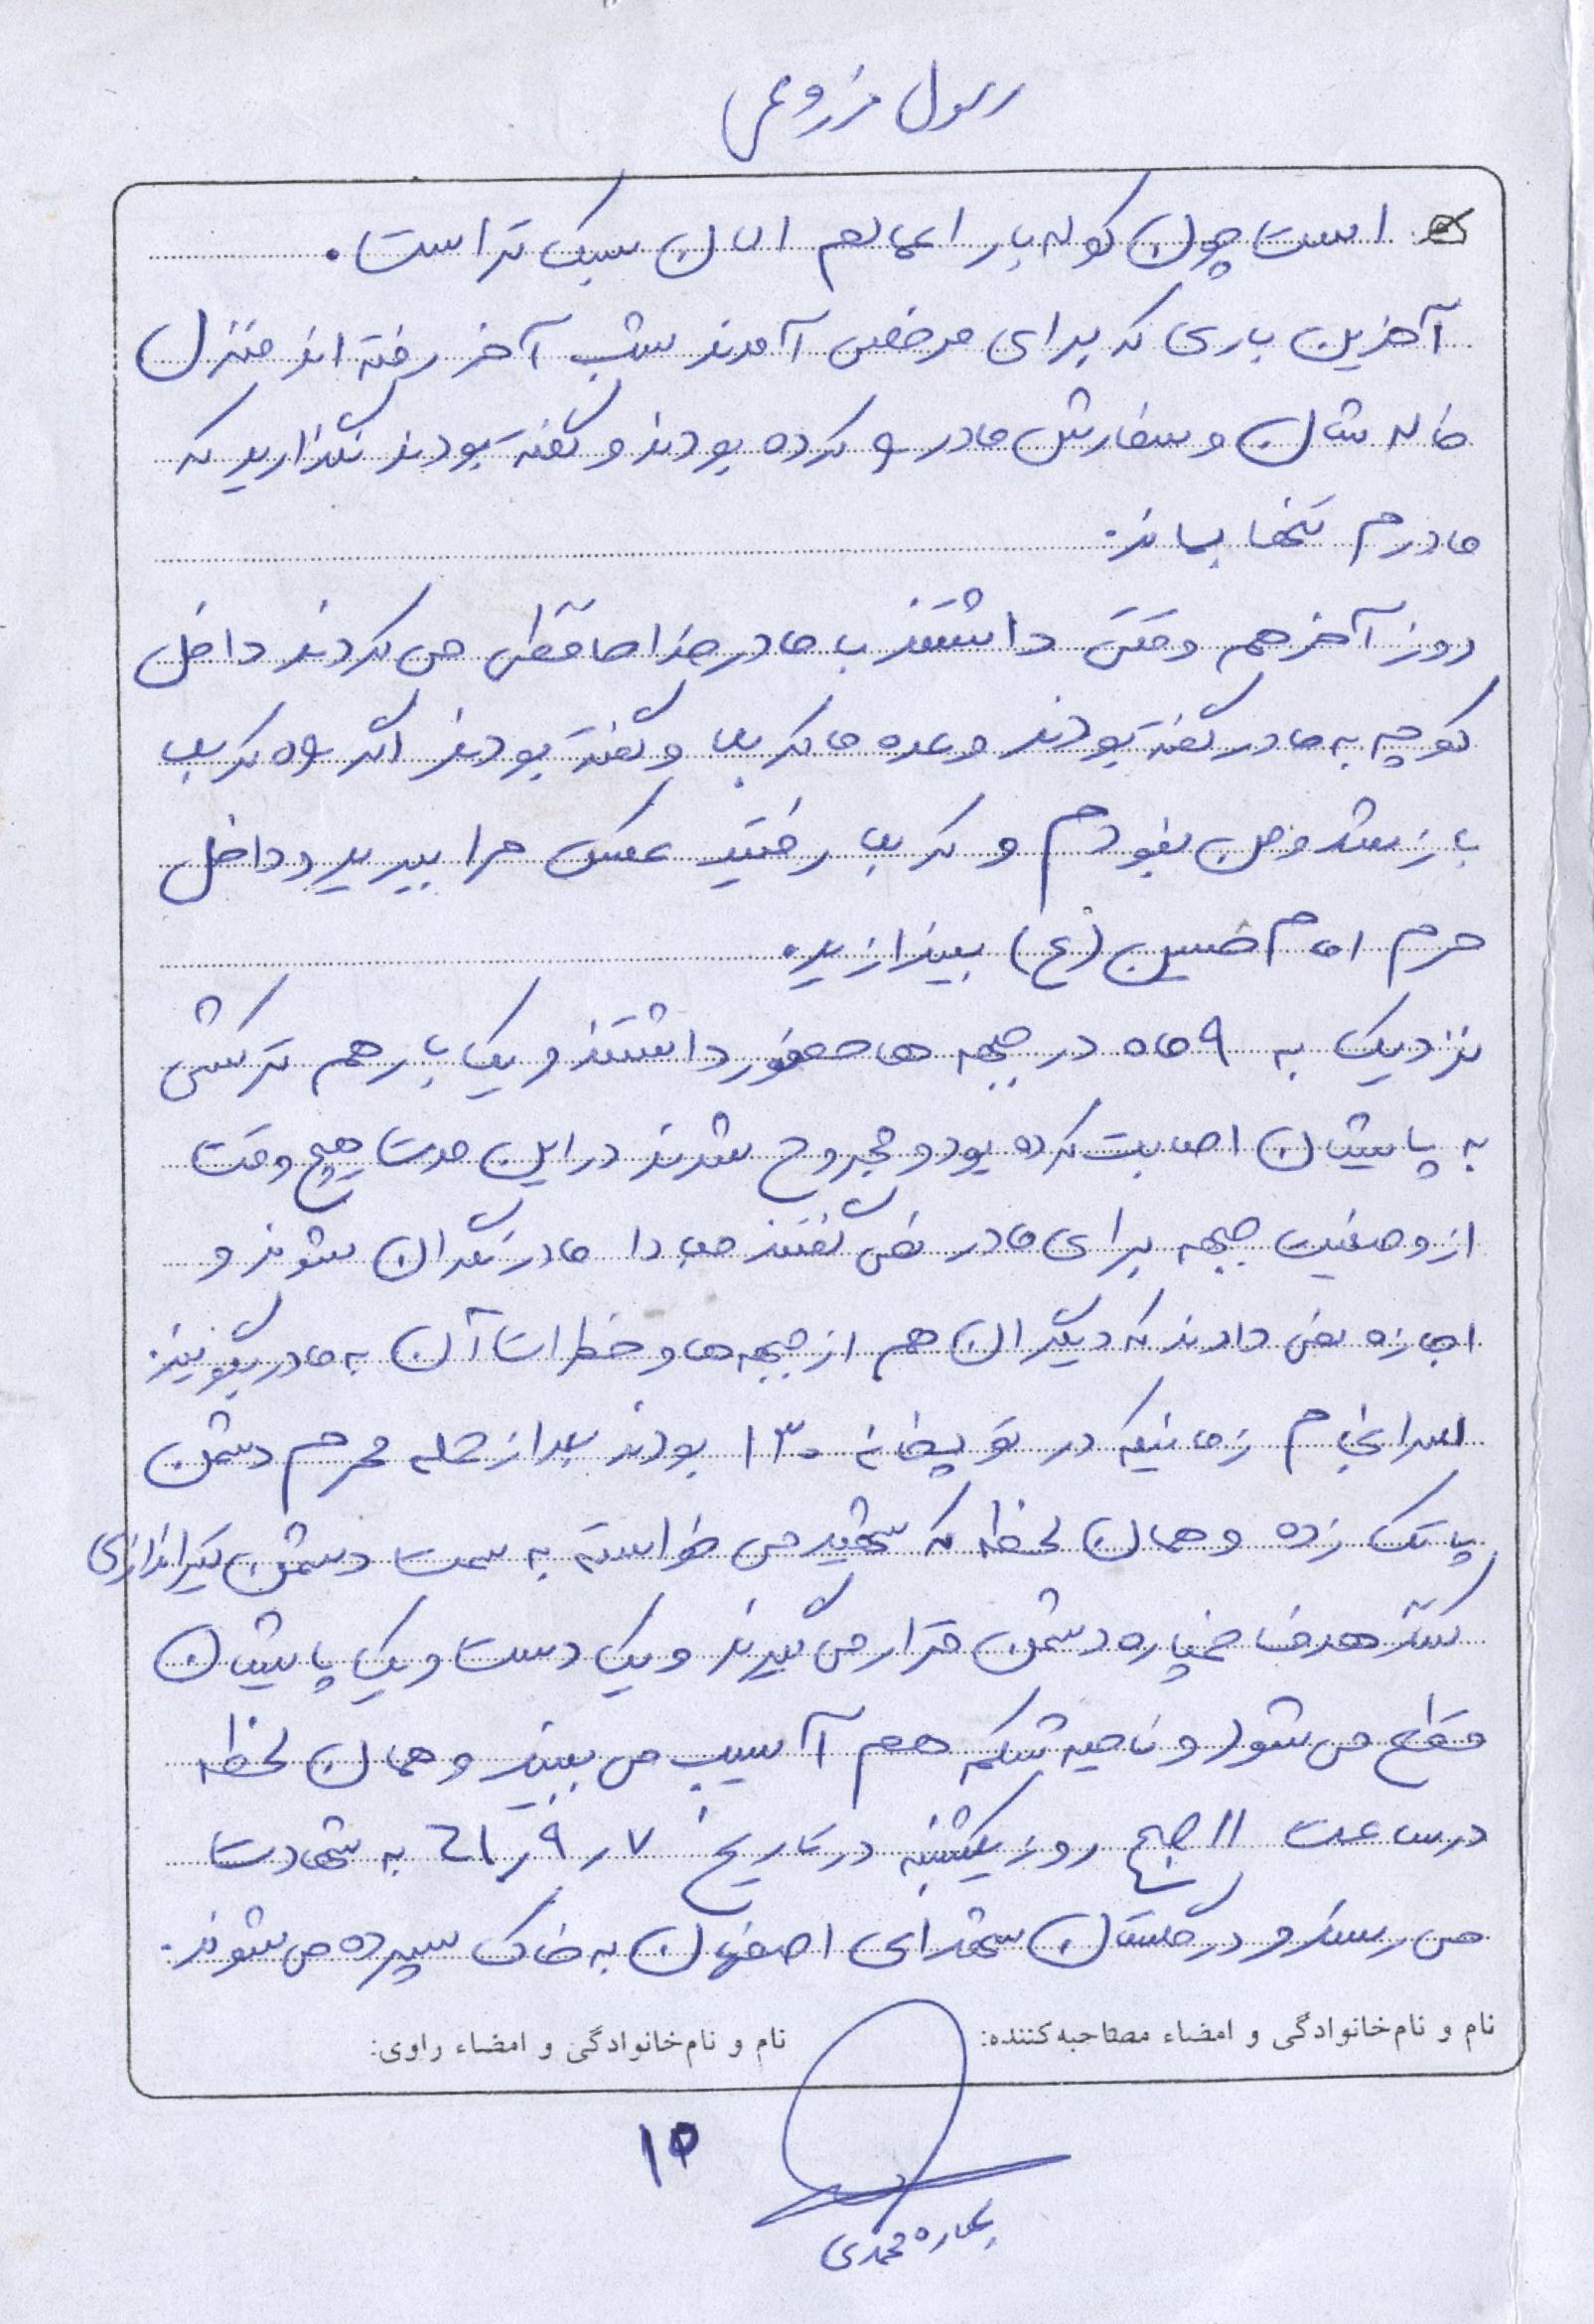 رسول مزروعی
است چون کوله بار اعمالم الان سبک تر است.
آخرین باری که برای مرخصی آمدند شب آخر رفته اند منزل
خاله شان و سفارش مادر و کرده بودند و گفته بودند نگذارید که
مادرم تنها بماند.
روز آخر هم وقتی داشتند با مادر خداحافظی می کردند داخل
کوچه به مادر گفته بودند وعده ما کربلا و گفته بودند اگر راه کربلا
باز شد و من نبودم و کربلا رفتید عکس مرا ببرید و داخل
حرم امام حسین (ع) بیندازید.
نزدیک به ۹ ماه در جبهه ها حضور داشتند و یک بار هم ترکش
به پایشان اصابت کرده بود و مجروح شدند در این مدت هیچ وقت
از وضعیت جبهه برای مادر نمی گفتند مبادا مادر نگران شوند و
اجازه نمی دادند که دیگران هم از جبهه ها و خطرات آن به مادر بگویند.
سرانجام زمانیکه در توپخانه ۱۳۰ بودند بعد از حمله محرم دشمن
پاتک زده و همان لحظه که شهید می خواسته به سمت دشمن تیراندازی
کنند هدف خمپاره دشمن قرار می گیرند و یک دست و یک پایشان
قطع می شود و ناحیه شکم هم آسیب می بیند و همان لحظه
در ساعت ۱۱ صبح روز یکشنبه در تاریخ ۷ر۹ر۶۱ به شهادت
می رسند و در گلستان شهدای اصفهان به خاک سپرده می شوند.
نام و نام‌خانوادگی و امضاء مصاحبه‌کننده: نام و نام‌خانوادگی و امضاء راوی:
۱۵
بهاره محمدی